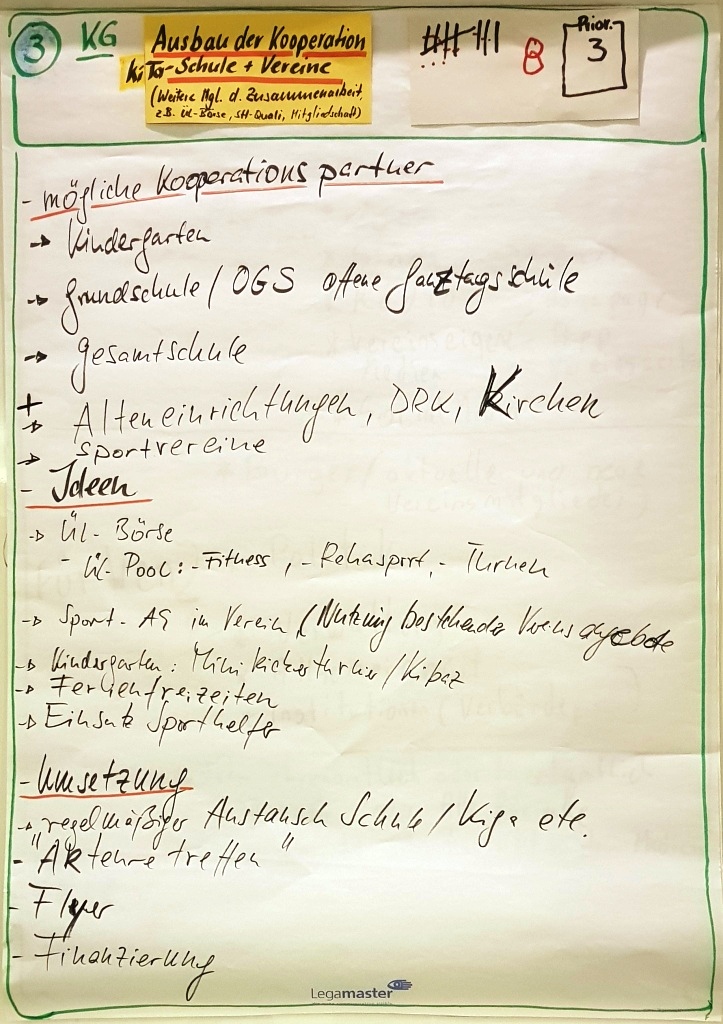 3 KG
Ausbau der Kooperation
KiTa-Schule + Vereine
(Weitere Mgl. d. Zusammenarbeit,
z.B. ÜL-Börse, SH-Quali, Mitgliedschaft)
8
Prior.
3
- mögliche Kooperationspartner
→ Kindergarten
→ Grundschule / OGS offene Ganztagsschule
→ Gesamtschule
+
→ Alteneinrichtungen, DRK, Kirchen
→ Sportvereine
- Ideen
→ ÜL-Börse
- ÜL-Pool: - Fitness, - Rehasport, - Turnen
→ Sport-AG im Verein (Nutzung bestehender Vereinsangebote
→ Kindergarten: Minikickerturnier / Kibaz
→ Ferienfreizeiten
→ Einsatz Sporthelfer
- Umsetzung
→ regelmäßiger Austausch Schule / Kiga etc.
- "Akteure treffen"
- Flyer
- Finanzierung
Legamaster